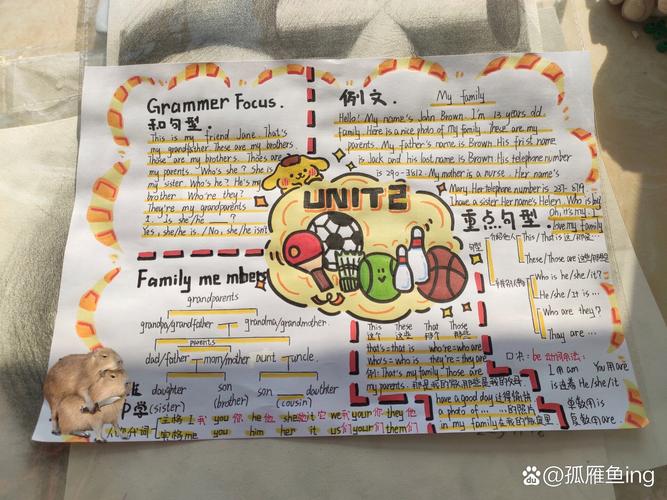 Grammer Focus.
和句型.
This is my friend Jane. That's
my grandfather. These are my brothers.
Those are my brothers. Those are
my parents. Who's she? She is
my sister. Who's he? He's my
brother. Who're they?
They're my grandparents
1. Is she/he ?
Yes, she/he is. /No, she/he isn't.
例文.
My family
Hello! My name's John Brown. I'm 13 years old
family. Here is a nice photo of My family. These are my
parents. My father's name is Brown. His frist name
is Jack and his last name is Brown. His telephone number
is 290-3812. My mother is a nurse. Her name's
Mary. Her telephone number is
I have a sister. Her name's Helen. Who is boy
Oh, it's my. I
love my family
UNIT2
重点句型.
This/That is
These/Those are
Who is he/she/it?
He/she/It is ...
Who are they?
Thay are ...
Family me mbers
grandparents
grandpa/grandfather grandma/grandmother.
parents
dad/father mom/mother aunt uncle.
daughter son son dauchter
(sister) (brother) (cousin)
主格 I 我 you 你 he 他 she她 it它 we我 you你 they他
me you him her it us们 you们 them们
This These That Those
这个 这些 那个 那些
that's=that is who're=who are
who's=who is they're=they are
例: That's my family. Those are
my parents.
have a good day
a photo of... ...的照片
in my family 在我的家庭里
口诀: be 动词用法:
I 用 am You 用 are
is 连着 He/she/it
单数用 is
复数用 are.
@孤雁鱼ing